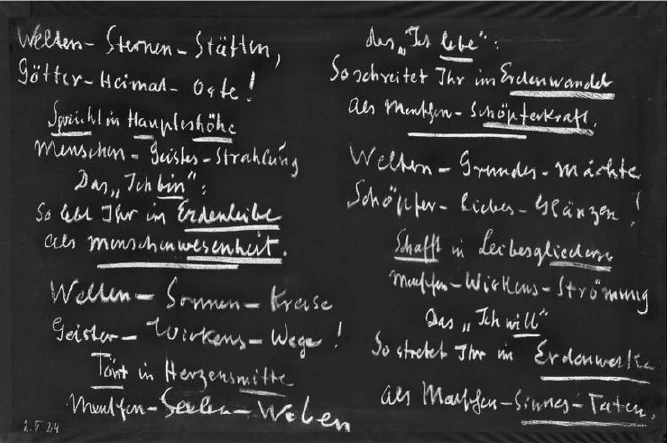 Welten-Sternen-Stätten,
Götter-Heimat-Orte!
Spricht in Haupteshöhe
Menschen-Geistes-Strahlung
Das „Ich bin":
So lebt Ihr im Erdenleibe
als Menschenwesenheit.
Welten-Sonnen-Kreise
Geister-Wirkens-Wege!
Tönt in Herzensmitte
Menschen-Seelen-Weben
das „Ich lebe":
So schreitet Ihr im Erdenwandel
als Menschen-Schöpferkraft.
Welten-Grundes-Mächte
Schöpfer-Liebes-Glänzen!
Schafft in Leibesgliedern
Menschen-Wirkens-Strömung
Das „Ich will"
So strebet Ihr im Erdenwerke
als Menschen-Sinnes-Taten.
2.V 24